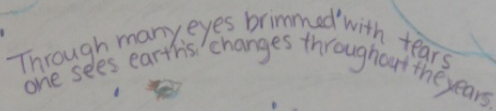 Through many eyes brimmed with tears
one sees earth's changes throughout the years